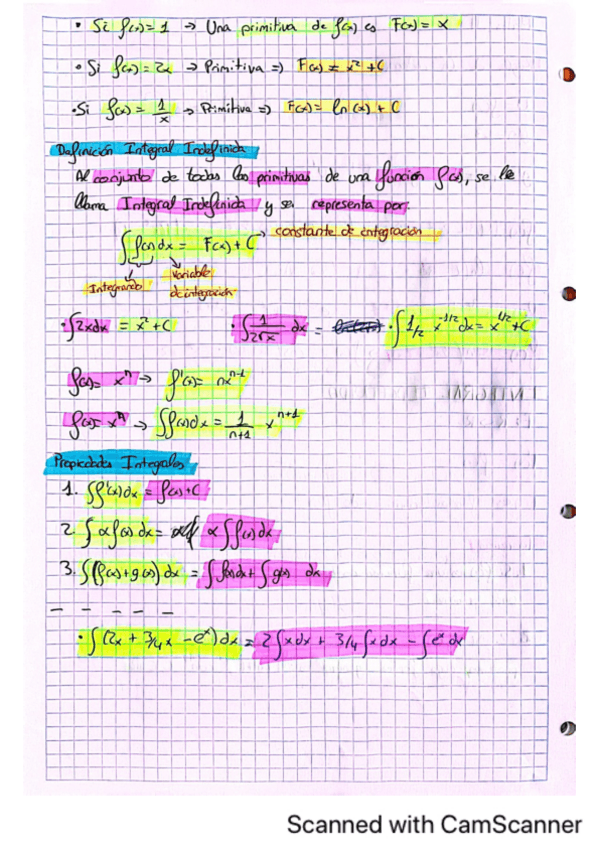 • Si f(x) = 1 → Una primitiva de f(x) es F(x) = x
• Si f(x) = 2x → Primitiva => F(x) = x² + C
• Si f(x) = 1/x → Primitiva => F(x) = ln(x) + C
Definición Integral Indefinida
Al conjunto de todas las primitivas de una función f(x), se le
llama Integral Indefinida y se representa por:
∫f(x)dx = F(x) + C → constante de integración
Integrando variable
de integración
• ∫2xdx = x² + C • ∫1/(2√x) dx = • ∫1/2 x^-1/2 dx = x^1/2 + C
f(x) = xⁿ → f'(x) = nx^n-1
f(x) = xⁿ → ∫f(x)dx = 1/(n+1) x^n+1
Propiedades Integrales
1. ∫f'(x)dx = f(x) + C
2. ∫αf(x)dx = α∫f(x)dx
3. ∫(f(x) + g(x))dx = ∫f(x)dx + ∫g(x) dx
— — — — —
• ∫(2x + 3/4x - eˣ)dx = 2∫xdx + 3/4∫xdx - ∫eˣdx
Scanned with CamScanner